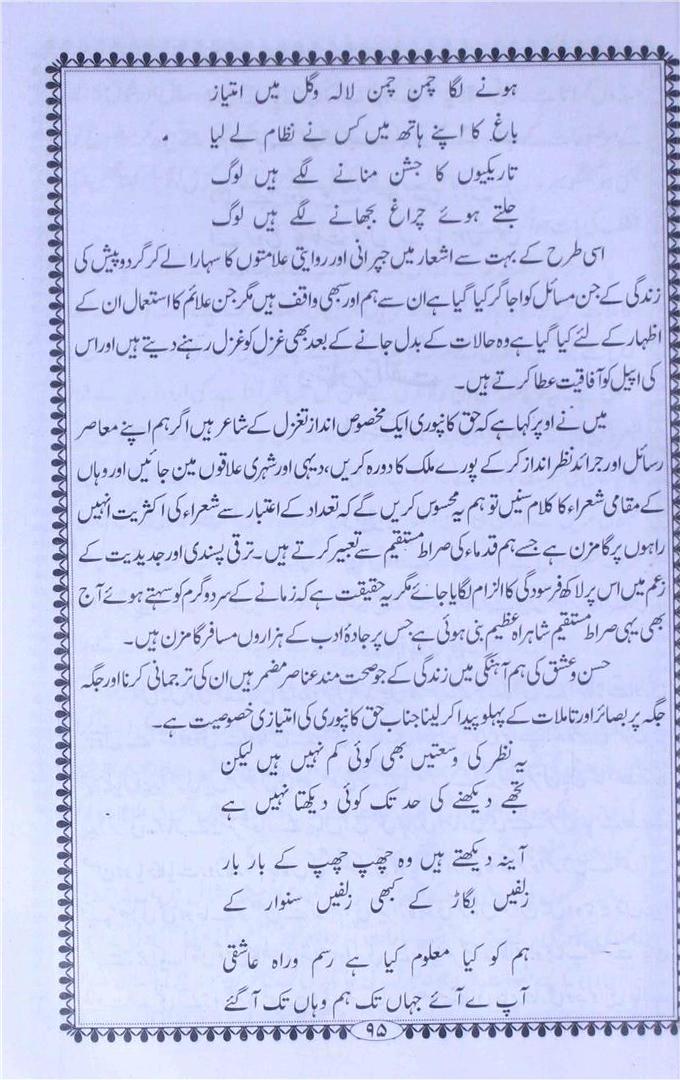 ہونے لگا چمن چمن لالہ وگل میں امتیاز
باغ کا اپنے ہاتھ میں کس نے نظام لے لیا
تاریکیوں کا جشن منانے لگے ہیں لوگ
جلتے ہوئے چراغ بجھانے لگے ہیں لوگ
اسی طرح کے بہت سے اشعار میں جہرانی اور روایتی علامتوں کا سہارا لے کر گردوپیش کی
زندگی کے جن مسائل کو اجاگر کیا گیا ہے ان سے ہم اور سبھی واقف ہیں مگر جن علائم کا استعمال ان کے
اظہار کے لئے کیا گیا ہے وہ حالات کے بدل جانے کے بعد بھی غزل کو غزل رہنے دیتے ہیں اور اس
کی اپیل کو آفاقیت عطا کرتے ہیں۔
میں نے اوپر کہا ہے کہ حق کانپوری ایک مخصوص انداز تغزل کے شاعر ہیں اگر ہم اپنے معاصر
رسائل اور جرائد نظر انداز کر کے پورے ملک کا دورہ کریں، دیہی اور شہری علاقوں مین جائیں اور وہاں
کے مقامی شعراء کا کلام سنیں تو ہم یہ محسوس کریں گے کہ تعداد کے اعتبار سے شعراء کی اکثریت انہیں
راہوں پر گامزن ہے جسے ہم قدماء کی صراط مستقیم سے تعبیر کرتے ہیں۔ ترقی پسندی اور جدیدیت کے
زعم میں اس پر لاکھ فرسودگی کا الزام لگایا جائے مگر یہ حقیقت ہے کہ زمانے کے سردوگرم کو سہتے ہوئے آج
بھی یہی صراط مستقیم شاہراہ عظیم بنی ہوئی ہے جس پر جادۂ ادب کے ہزاروں مسافر گامزن ہیں۔
حسن وعشق کی ہم آہنگی میں زندگی کے جو صحت مند عناصر مضمر ہیں ان کی ترجمانی کرنا اور جگہ
جگہ پر بصائر اور تاملات کے پہلو پیدا کر لینا جناب حق کانپوری کی امتیازی خصوصیت ہے۔
یہ نظر کی وسعتیں بھی کوئی کم نہیں ہیں لیکن
تجھے دیکھنے کی حد تک کوئی دیکھتا نہیں ہے
آینہ دیکھتے ہیں وہ چھپ چھپ کے بار بار
زلفیں بگاڑ کے کبھی زلفیں سنوار کے
ہم کو کیا معلوم کیا ہے رسم وراہ عاشقی
آپ لے آئے جہاں تک ہم وہاں تک آگئے
۹۵